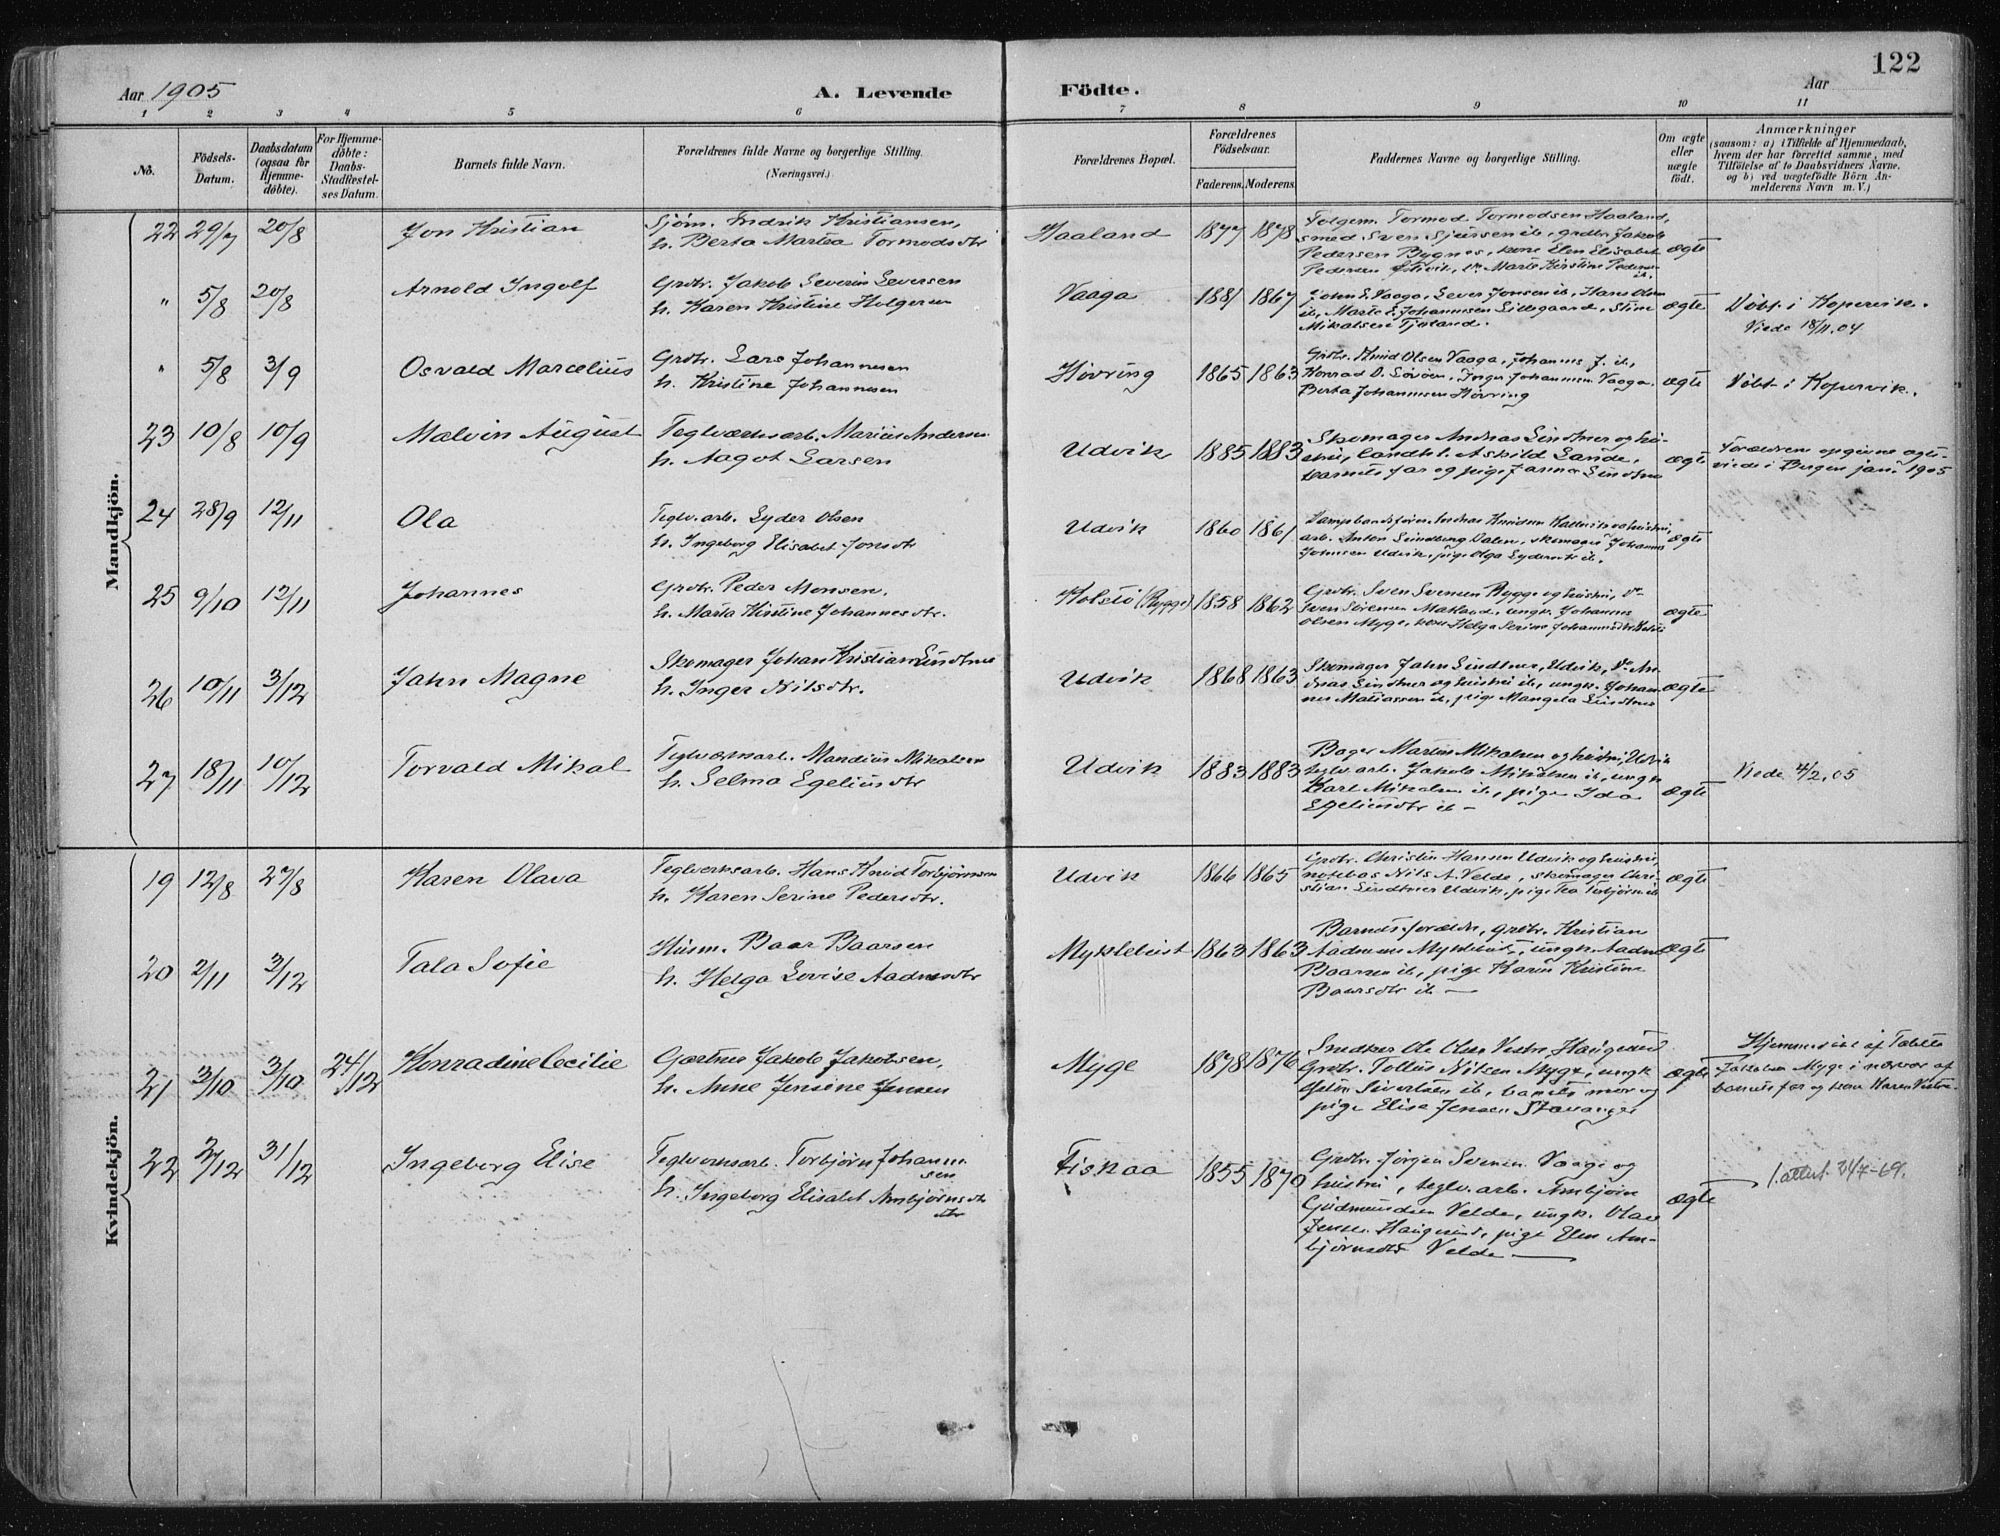 Aar 1905 A. Levende Födte. Aar 122
1 2 3 4 5 6 7 8 9 10 11
No.
Födsels-Datum.
Daabsdatum (ogsaa for Hjemme-döbte).
For Hjemme-döbte: Daabs-Stadfæstel-ses Datum.
Barnets fulde Navn.
Forældrenes fulde Navne og borgerlige Stilling. (Næringsvei.)
Forældrenes Bopæl.
Forældrenes Födselsaar.
Faderens. Moderens.
Faddernes Navne og borgerlige Stilling.
Om ægte eller uægte födt.
Anmærkninger
(saasom: a) i Tilfælde af Hjemmedaab, hvem der har forrettet samme, med Tilföielse af to Daabsvidners Navne, og b) ved uægtefödte Börn Anmelderens Navn m. V.)
Mandkjön.
22 29/7 20/8 Jon Kristian
Sjöm. Endrik Kristiansen,
h. Berta Martea Tormodsdtr
Haaland 1877 1878
Tormod Tormodsen Haaland,
smed Sven Sjursen ib, grdbr. Jakob
Pedersen Bygnes, kone Elen Elisabet
Pedersen, Marte Kirstine
ægte
" 5/8 20/8 Arnold Ingolf
Grdbr. Jakob Severin Seversen
h. Karen Kristine Holgersen
Vaaga 1881 1867
John S. Vaaga, Sever Jonsen ib, Hans Olsen
ib, Marte E. Johannesen Lillegaard, Stine
Mikalsen Tjøland.
ægte
Døbt i Kopervik.
Viede 18/11.04
" 5/8 3/9 Osvald Marcelius
Grdbr. Lars Johannesen
h. Kristine Johannesen
Høvring 1865 1863
Grdbr. Knud Olsen Vaaga, Johannes J. ib,
Konrad O. , Inger Johannesen Vaaga.
Berta Johannesen Høvring
ægte
Døbt i Kopervik.
23 10/8 10/9 Malvin August
Teglværksarb. Marius Andersen
h. Aagot Larsen
Udvik 1885 1883
Skomager Andreas Lindtner og hu-
stru, Landh. Askild Sande,
barnets far og pige Lindtner
ægte
Forældrene opgivne ægte-
viede i Bergen jan. 1905
24 28/9 12/11 Ola
Teglv.arb. Lyder Olsen
h. Ingeborg Elisabet Jonsdtr
Udvik 1860 1861
Andreas Knudsen og hustru,
arb. Anton Lindberg Dalen, skomager Johannes
Udvik, pige Olga Lydersdtr ib.
ægte
25 9/10 12/11 Johannes
Grdbr. Peder Monsen.
h. Marta Kirstine Johannesdtr.
Kolstø (Rygge) 1858 1862
Grdbr. Sven Svensen Rygge og hustru, do
Sven Sörensen Matland, ungk. Johannes
Olsen Myge, kone Helga Serine Johannesdtr
ægte
26 10/11 3/12 Jahn Magne
Skomager Johan Kristian Lindtner
h. Inger Nilsdtr.
Udvik 1868 1863
Skomager Jahn Lindtner, Udvik, do An-
dreas Lindtner og hustru ib, ungk. Johan-
nes Matiassen ib, pige Mangela Lindtner
ægte
27 18/11 10/12 Torvald Mikal
Teglværksarb. Mandius Mikalsen
h. Selma Egeliusdtr
Udvik 1883 1883
Bager Martin Mikalsen og hustru, Udvik
teglv.arb. Jakob Mikalsen ib, ungk
Karl Mikalsen ib, pige Ida
Egeliusdtr ib –
ægte
Viede 4/2.05
Kvindekjön.
19 12/8 27/8 Karen Olava
Teglverksarb. Hans Knud Torbjørnsen
h. Karen Serine Pedersdtr.
Udvik 1866 1865
Grdbr. Christin Hansen Udvik og hustru,
notebas Nils A. Velde, skomager Chri-
stian Lindtner Udvik, pige Tea ib
ægte
20 2/11 3/12 Tala Sofie
Husm. Baar Baarsen
h. Helga Lovise Aadnesdtr
Myklebust 1863 1863
Barnets forældre, grdbr. Kristian
Aadnesen Myklebust, ungk. Aadne
Baarsen ib, pige Karen Kristine
Baarsdtr ib –
ægte
21 3/10 3/10 24/12 Konradine Cecilie
Gartner Jakob Jakobsen,
h. Anne Jensine Jensen
Myge 1878 1876
Snedker Ole Olsen Vestre Haugesund
Grdbr. Tollus Nilsen Myge, ungk
Sivertsen ib, barnets mor og
pige Elise Jensen Stavanger
ægte
Hjemmedöbt af
Jakobsen Myge i nærvær af
barnets far og kone Karen Vestre
22 2/12 31/12 Ingeborg Elise
Teglverksarb. Torbjørn Johannes-
sen
h. Ingeborg Elisabet Ambjørnsdtr
dtr
Fiskaa 1855 1870
Grdbr. Jørgen Svensen Vaage og
hustru, teglv.arb. Ambjørn
Gudmundsen Velde, ungk. Olav
Jensen Haugesund, pige Elen Am-
bjørnsdtr Velde –
ægte
1. attest. 24/7-69.